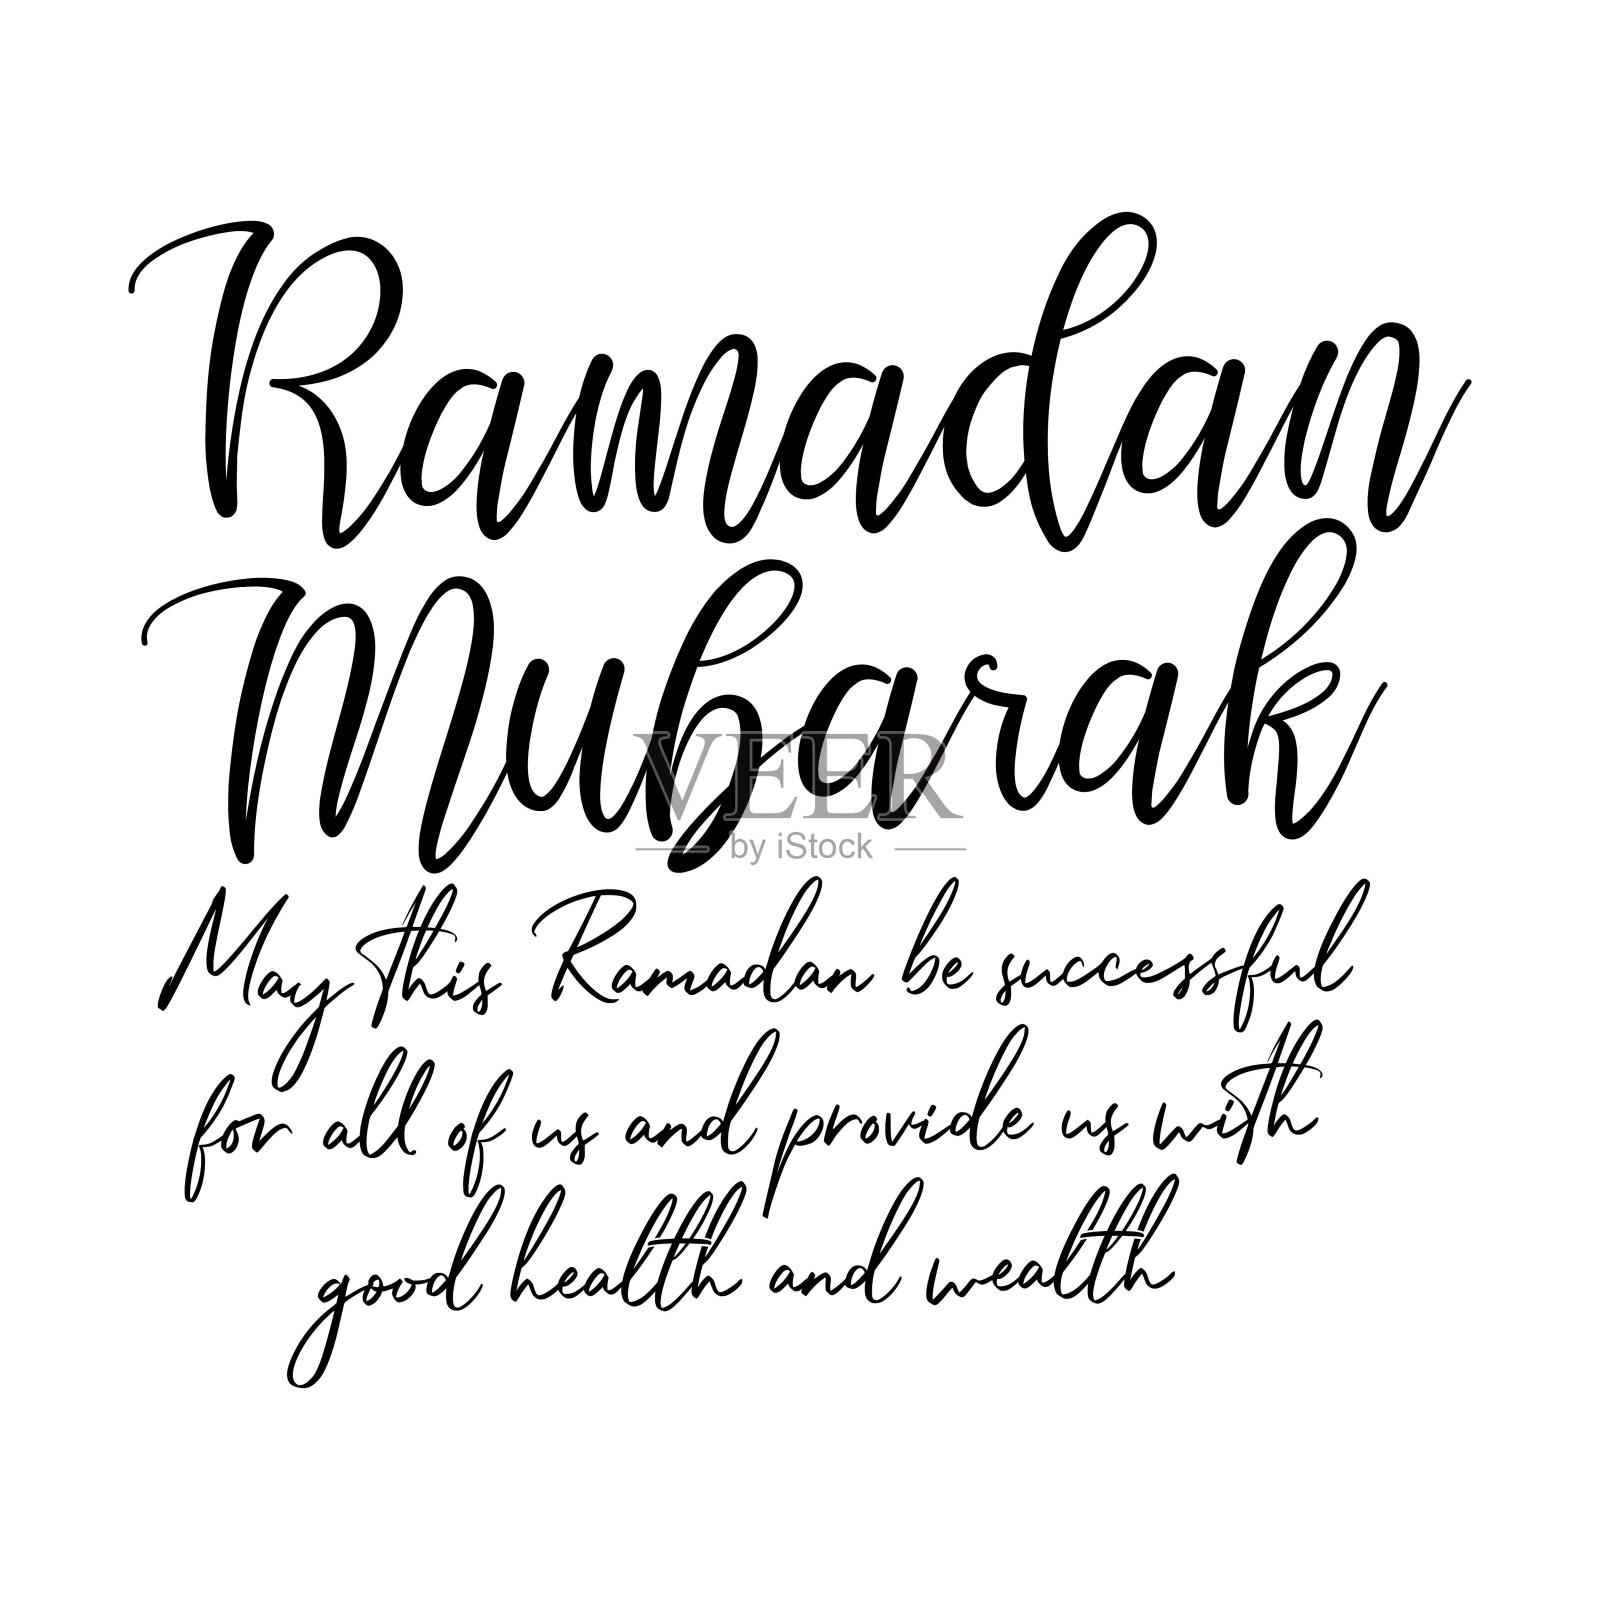 Ramadan
Mubarak
VEER
by iStock
May this Ramadan be successful
for all of us and provide us with
good health and wealth